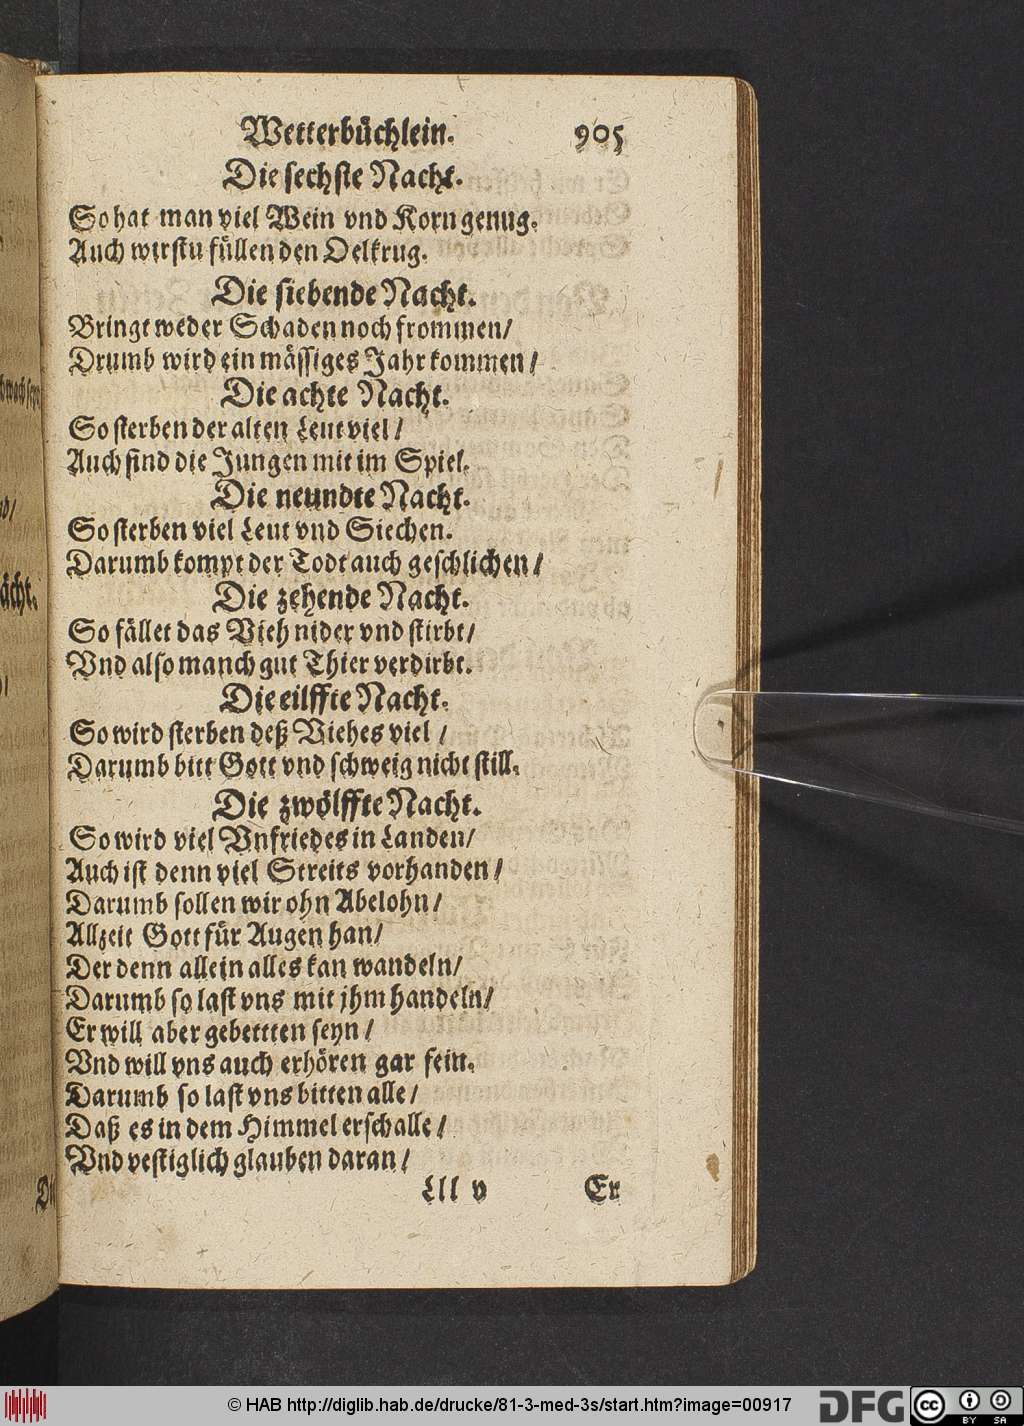 Wetterbüchlein. 905
Die sechste Nacht.
So hat man viel Wein vnd Korn genug.
Auch wirstu füllen den Oelkrug.
Die siebende Nacht.
Bringt weder Schaden noch frommen/
Drumb wird ein mässiges Jahr kommen/
Die achte Nacht.
So sterben der alten Leut viel/
Auch sind die Jungen mit im Spiel.
Die neundte Nacht.
So sterben viel Leut vnd Siechen.
Darumb kompt der Todt auch geschlichen/
Die zehende Nacht.
So fället das Vieh nider vnd stirbt/
Vnd also manch gut Thier verdirbt.
Die eilffte Nacht.
So wird sterben deß Viehes viel/
Darumb bitt Gott vnd schweig nicht still.
Die zwölffte Nacht.
So wird viel Vnfriedes in Landen/
Auch ist denn viel Streits vorhanden/
Darumb sollen wir ohn Abelohn/
Allzeit Gott für Augen han/
Der denn allein alles kan wandeln/
Darumb so last vns mit jhm handeln/
Er will aber gebettten seyn/
Vnd will vns auch erhören gar fein.
Darumb so last vns bitten alle/
Daß es in dem Himmel erschalle/
Vnd vestiglich glauben daran/
Lll v Er
© HAB http://diglib.hab.de/drucke/81-3-med-3s/start.htm?image=00917
DFG cc BY SA